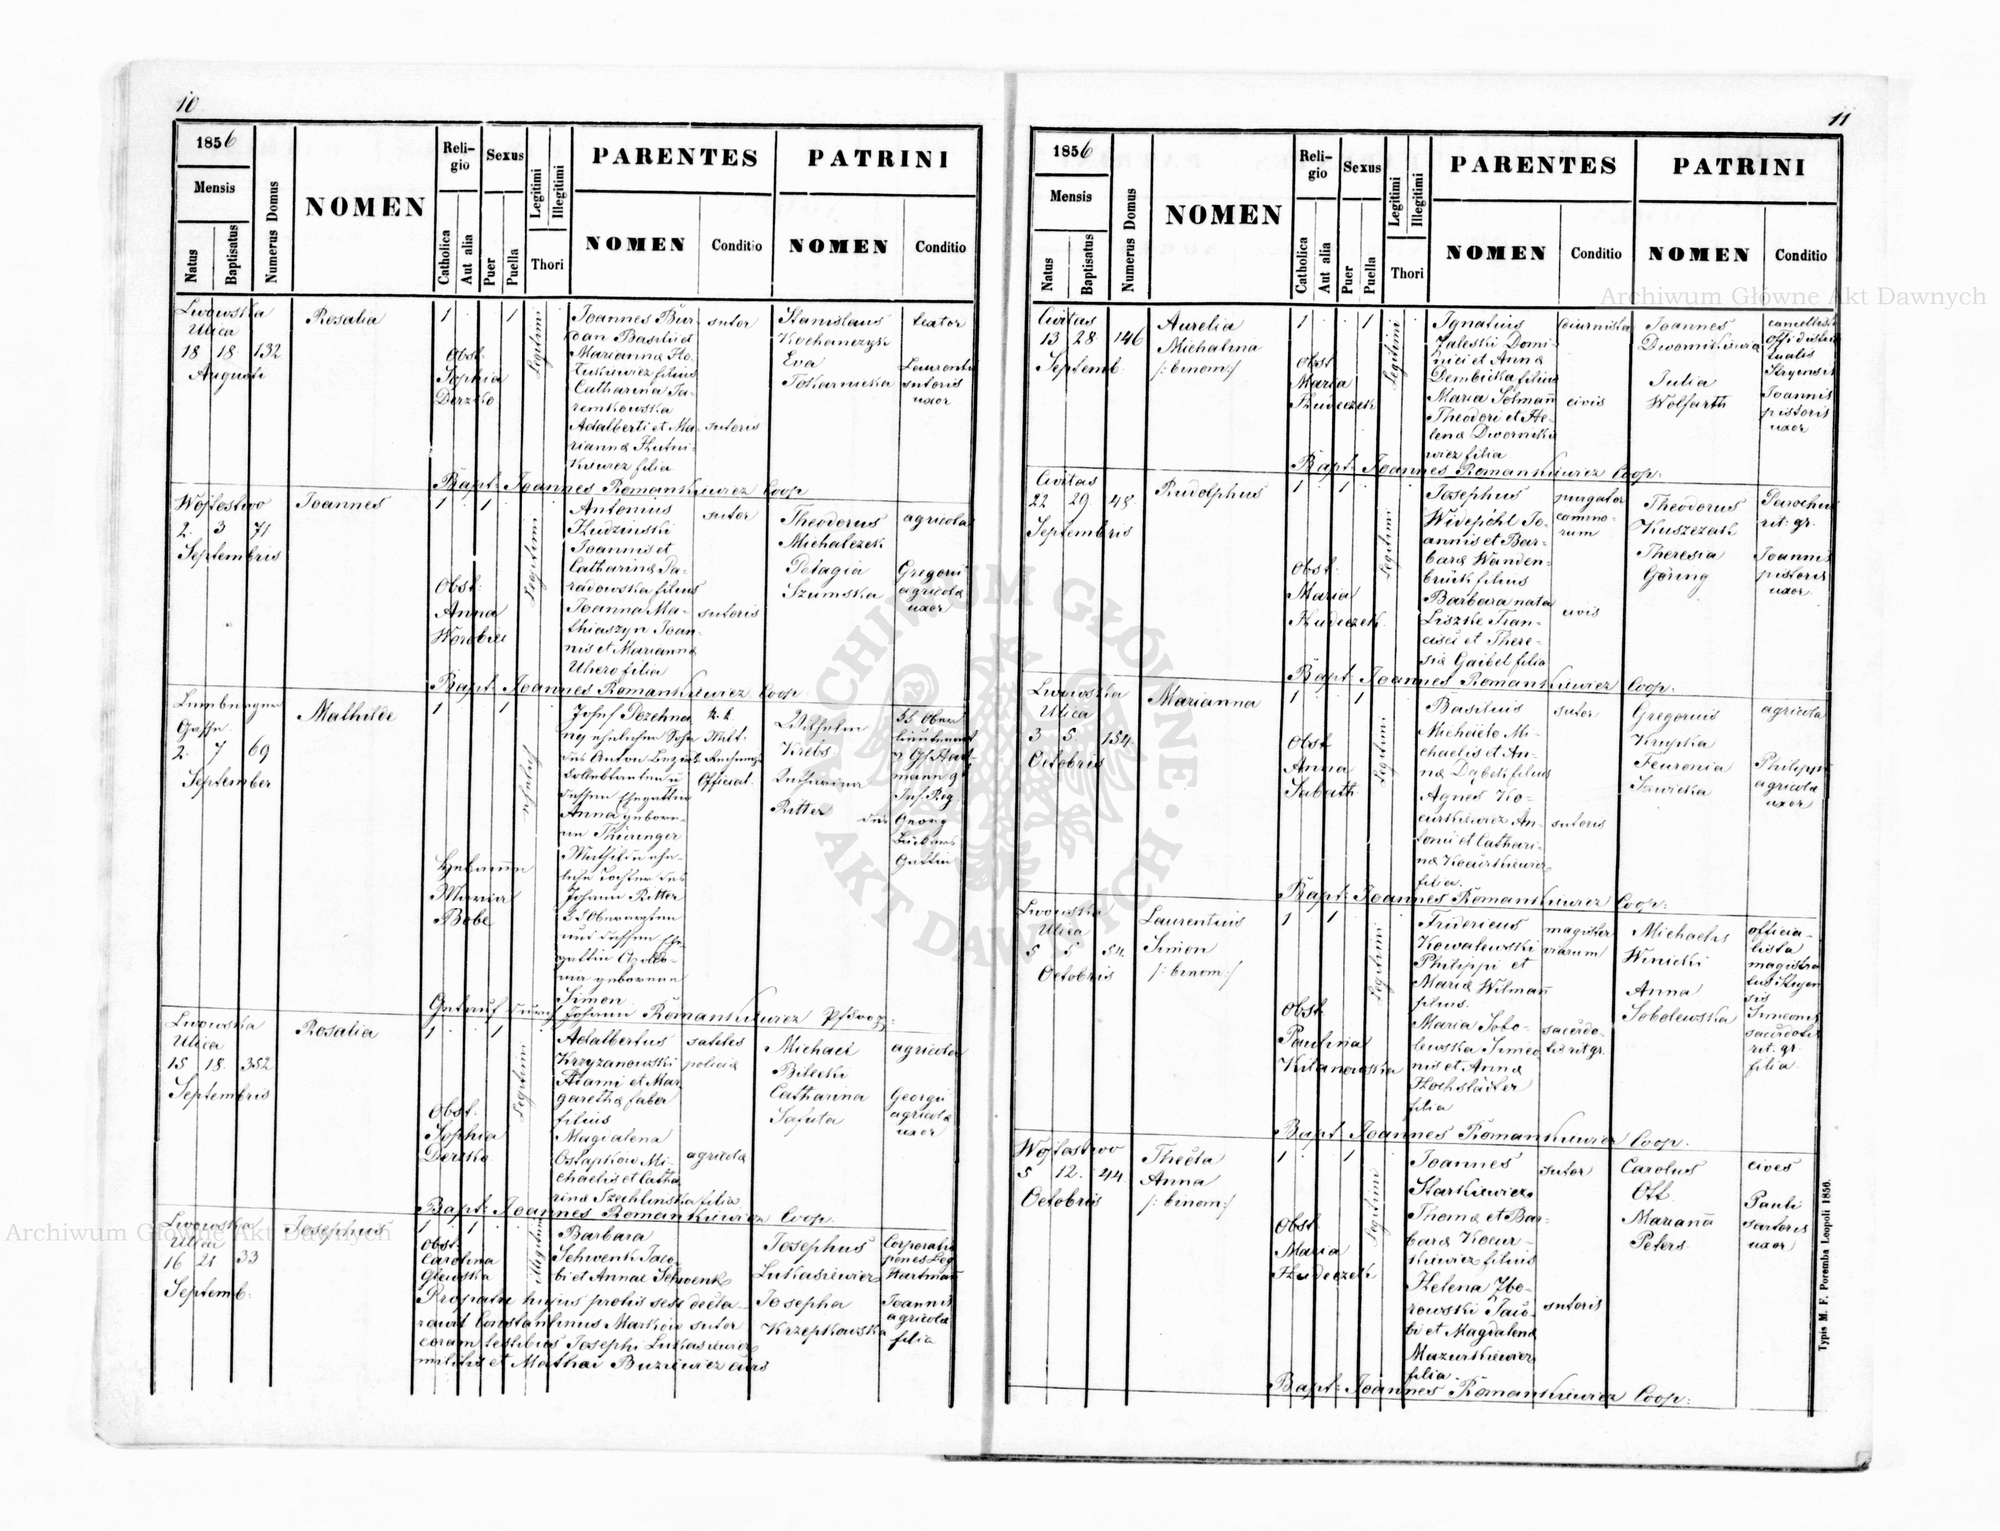 10
1856
Mensis
Natus
Baptisatus
Numerus Domus
NOMEN
Religio
Catholica
Aut alia
Sexus
Puer
Puella
Legitimi
Illegitimi
Thori
PARENTES
NOMEN
Conditio
PATRINI
NOMEN
Conditio
Lwowska
Ulica
18 18 132
Augusti
Rosalia
1 1
Obst.
Sophia
Derzko
Legitimi
Joannes Bur-
dan Basilii et
Marianna Ho-
filius
Catharina Ja-
remkowska
Adalberti et Ma-
rianna Hutni-
kiewicz filia
sutor
sutoris
Stanislaus
Kochanczyk
Eva
Tokarnicka
textor
Laurentii
sutoris
uxor
Bapt: Joannes Romankiewicz Coop
Wojtostwo
2. 3 71
Septembris
Joannes
1 1
Obst:
Anna
Worobiec
Legitimi
Antonius
Hudzinski
Joannis et
Catharina Pa-
radowska filius
Joanna Ma-
thiaszyn Joan-
nis et Marianna
Uhero filia
sutor
sutoris
Theodorus
Michalczek
Pelagia
Szumska
agricola
Gregorii
agricola
uxor
Bapt: Joannes Romankiewicz Coop
Lemberger
Gasse
2. 7 69
September
Mathilde
1 1
Hebamme
Maria
Bobe
ehelich
Josef
ehelicher Sohn
des Anton
dessen Ehegattin
Anna gebore-
ne Thüringer
Mathilde ehe-
liche Tochter des
Johann Ritter
und dessen Ehe-
gattin Apolo-
nia geborene
Simon
k. k.
Milit.
Rechnungs
Official.
Wilhelm
Krebs
Katharina
Ritter
Ober
lieutenant
Inf. Reg.
des Georg
Gattin
Getauft durch Johann Romankiewicz
Lwowska
Ulica
15 18. 352
Septembris
Rosalia
1 1
Obst.
Sophia
Derzko
Legitimi
Adalbertus
Krzyzanowski
Adami et Mar
garetha Faber
filius
Magdalena
Ostapkow Mi-
chaelis et Catha
rina Szechlinska filia
sateles
policia
agricola
Michael
Bilecki
Catharina
Safuta
agricola
Georgii
agricola
uxor
Bapt: Joannes Romankiewicz Coop.
Lwowska
Ulica
16 21 33
Septemb:
Josephus
1 1
Obst:
Carolina
Glewska
Illegitimi
Barbara
Schwenk Jaco-
bi et Annae Schwenk
Pro patre hujus prolis sese decla-
ravit Constantinus Markow sutor
coram testibus Josephi Lukasiewicz
militis et Mathai Buziewicz civis
Josephus
Lukasiewicz
Josepha
Krzepkowska
Hartman
Joannis
agricola
filia
11
1856
Mensis
Natus
Baptisatus
Numerus Domus
NOMEN
Religio
Catholica
Aut alia
Sexus
Puer
Puella
Legitimi
Illegitimi
Thori
PARENTES
NOMEN
Conditio
PATRINI
NOMEN
Conditio
Civitas
13 28 146
Septemb.
Aurelia
Michalina
/: binom:/
1 1
Obst
Maria
Hudeczek
Legitimi
Ignatius
Zaleski Domi-
nici et Anna
Dembicka filius
Maria Solman
Theodori et He-
lena Dworniki
wicz filia
diurnista
civis
Joannes
Dwornikiewicz
Julia
Wolfarth
Joannis
pistoris
uxor
Bapt: Joannes Romankiewicz Coop.
Civitas
22 29 48
Septembris
Rudolphus
1 1
Obst.
Maria
Hudeczek
Legitimi
Josephus
Widepichl Jo-
annis et Bar-
bara Wanden-
brück filius
Barbara nata
Liszke Fran-
cisci et There-
sia Gaibel filia
purgator
camino-
rum
civis
Theodorus
Kuszezak
Theresia
Göring
Parochus
rit. gr.
Joannis
pistoris
uxor
Bapt: Joannes Romankiewicz Coop.
Lwowska
Ulica
3 5. 154
Octobris
Marianna
1 1
Obst
Anna
Sabath
Legitimi
Basilius
Michäcie Mi-
chaelis et An-
na Dąbek filius
Agnes Ko-
curkiewicz An-
tonii et Cathari-
na Kocurkiewicz
filia.
sutor
sutoris
Gregorius
Krupka
Feuronia
Sawicka
agricola
Philippi
agricola
uxor
Bapt: Joannes Romankiewicz Coop:
Lwowska
Ulica
5 5 54
Octobris
Laurentius
Simon
/: binom:/
1 1
Obst
Paulina
Kitanowska
Legitimi
Fridericus
Kowalewski
Philippi et
Maria Wilman
filius.
Maria Sobo-
lewska Simeo
nis et Anna
Hochsläiter
filia
magister
viarum
sacerdo-
tis rit gr.
Michaelis
Winicki
Anna
Sobolewska
officia-
lista
magistra
tus Stryen
sis
Simeonis
sacerdotis
rit. gr.
filia.
Bapt: Joannes Romankiewicz Coop.
Wojtostwo
5 12. 44
Octobris
Thecla
Anna
/: binom:/
1 1
Obst
Maria
Hudeczek
Legitimi
Joannes
Starkiewicz
Thoma et Bar-
bara Kocur-
kiewicz filius
Helena Zbo-
rowski Jaco-
bi et Magdalena
Mazurkiewicz
filia.
sutor
sutoris
Carolus
Ott.
Mariana
Peters
cives
Pauli
sartoris
uxor
Bapt: Joannes Romankiewicz Coop:
Typis M. F. Poremba Leopoli 1856.
Archiwum Główne Akt Dawnych
Archiwum Główne Akt Dawnych
ARCHIWUM GŁÓWNE • AKT DAWNYCH •